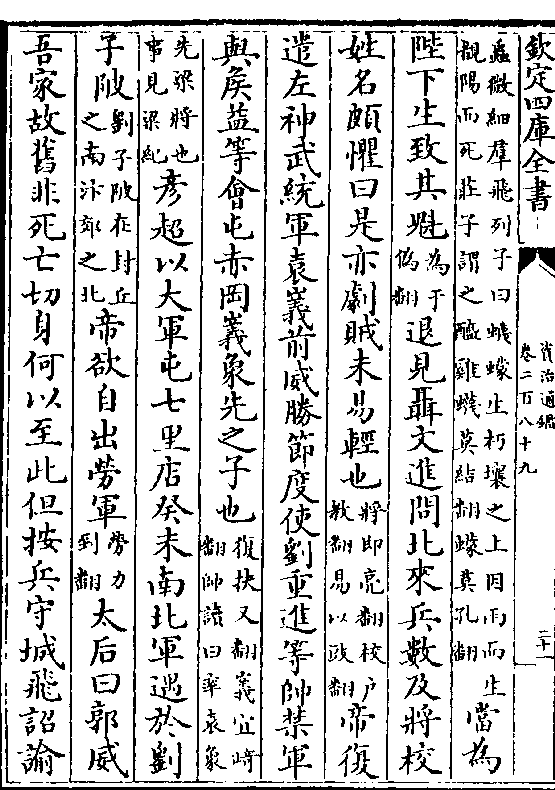 欽定四庫全書
資治通鑑
卷二百八十九
三十一
蠭微細羣飛列子曰蠛蠓生朽壤之上因雨而生
覩陽而死莊子謂之醯雞蠛莫結翻蠓莫孔翻
當為
陛下生致其魁
為于
偽翻
退見聶文進問北來兵數及將校
姓名頗懼曰是亦劇賊未易輕也
將即亮翻校户
教翻易以豉翻
帝復
遣左神武統軍袁㠖前威勝節度使劉重進等帥禁軍
與侯益等會屯赤岡㠖象先之子也
復扶又翻㠖宜崎
翻帥讀曰率袁象
先梁將也
事見梁紀
彥超以大軍屯七里店癸未南北軍遇於劉
子陂
劉子陂在封丘
之南汴郊之北
帝欲自出勞軍
勞力
到翻
太后曰郭威
吾家故舊非死亡切身何以至此但按兵守城飛詔諭